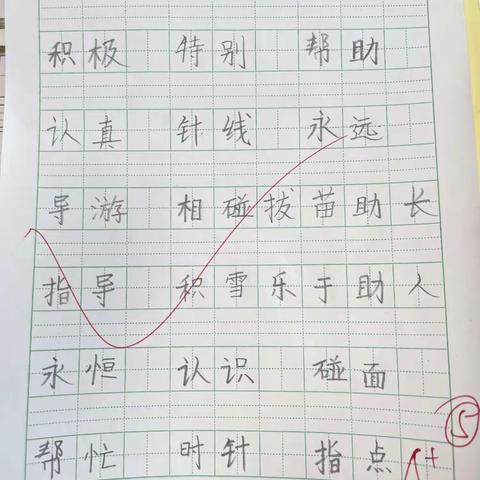 积极 特别 帮助
认真 针线 永远
导游 相碰 拔苗助长
指导 积雪 乐于助人
永恒 认识 碰面
帮忙 时针 指点
A+
5